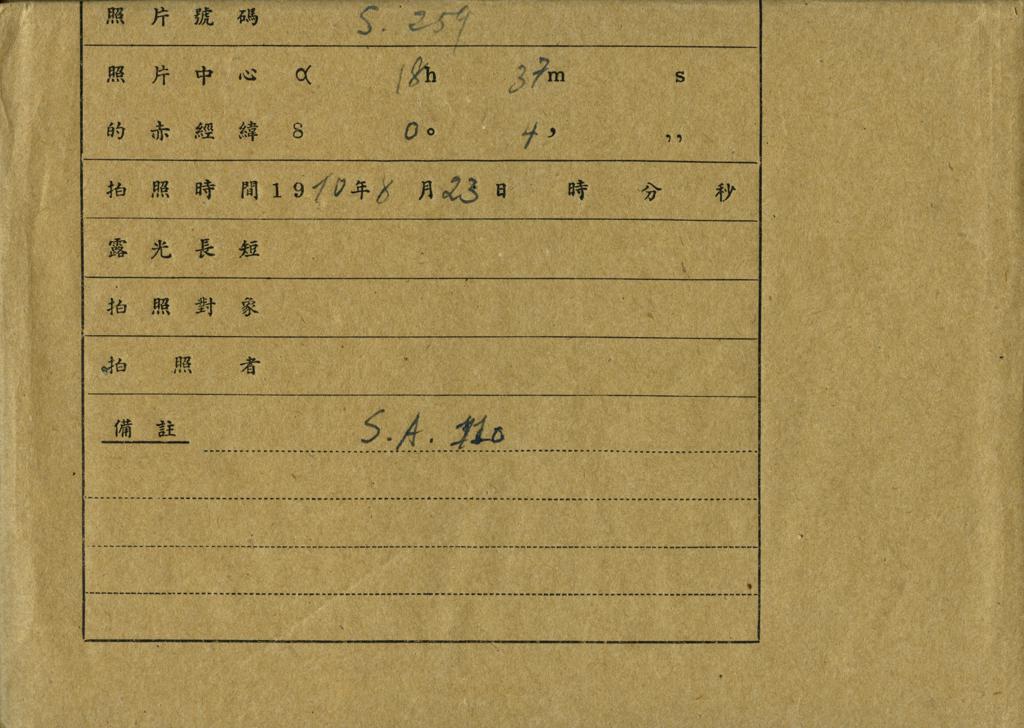 照片號碼 S. 259
照片中心 α 18h 37m s
的赤經緯 δ 0° 4' ,,
拍照時間 1910年8月23日 時 分 秒
露光長短
拍照對象
拍照者
備註 S.A. 110